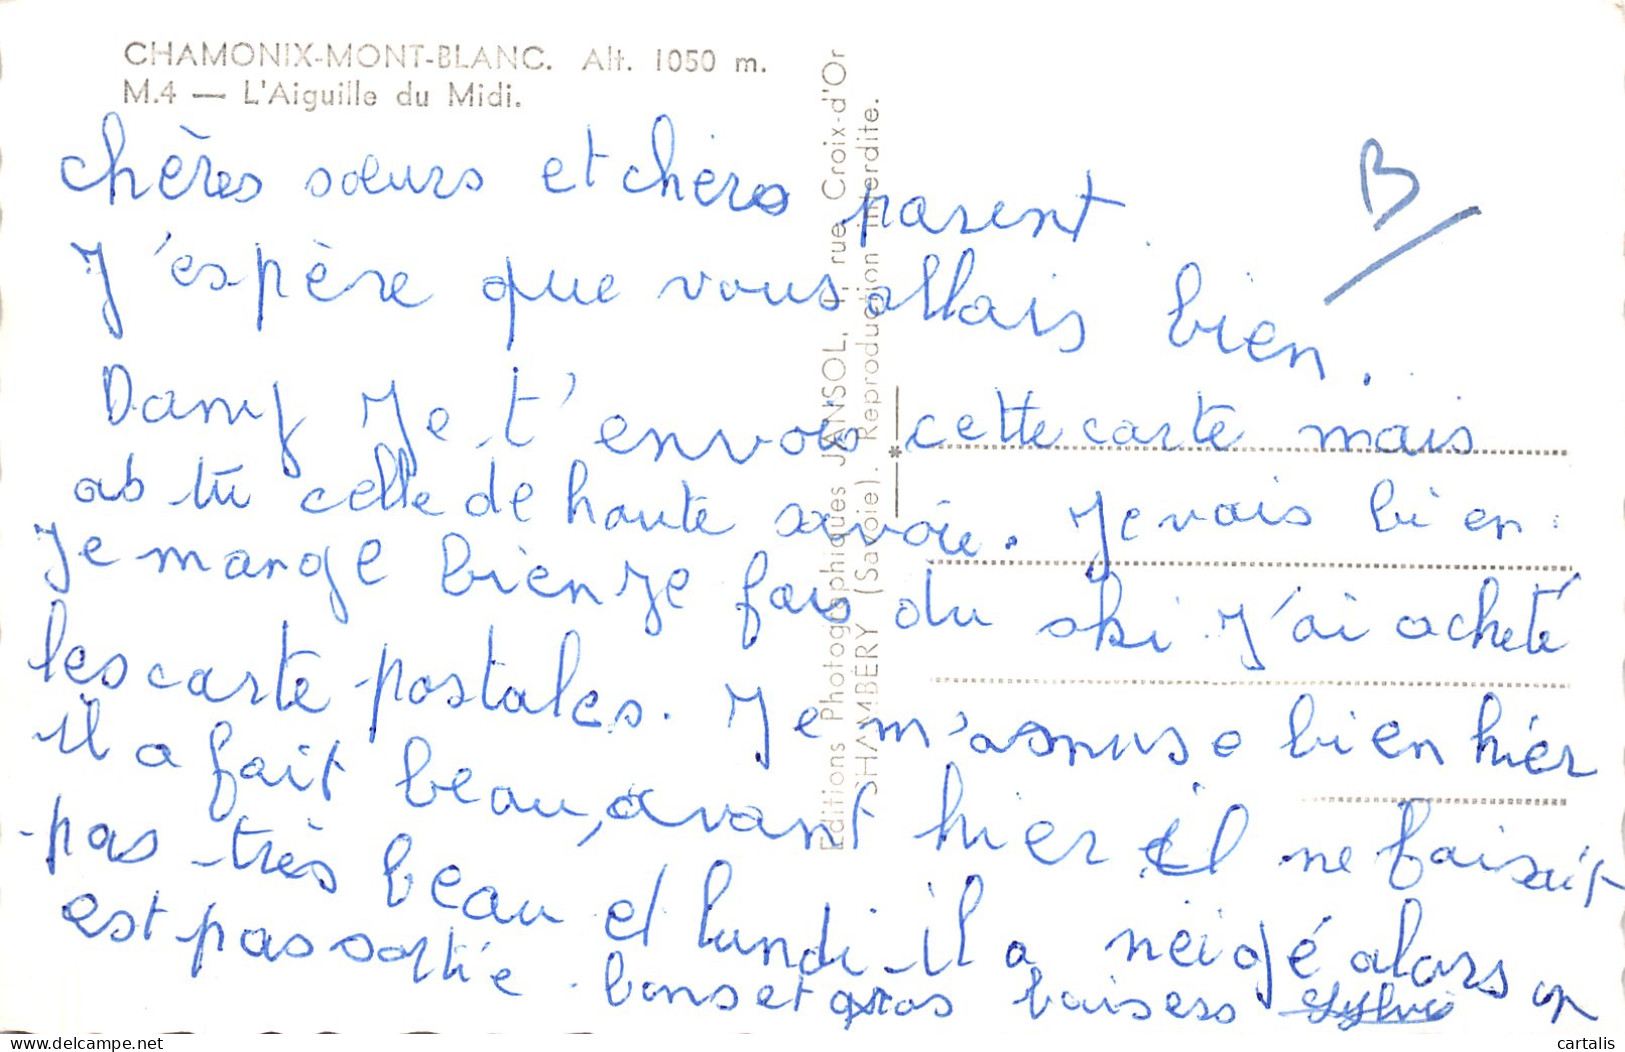 CHAMONIX-MONT-BLANC. Alt. 1050 m.
M.4 — L'Aiguille du Midi.
B
chères sœurs et chers parent.
J'espère que vous allais bien.
Dany Je t'envois cette carte mais
ab tu celle de haute savoie. Je vais bien.
Je mange bien Je fais du ski J'ai acheté
les carte postales. Je m'amuse bien hier
il a fait beau, avant hier il ne faisait
pas très beau et lundi il a neigé alors on
est pas sortie. bons et gros baisers Sylvie
Editions Photographiques JANSOL, 1, rue Croix-d'Or
SHAMBÉRY (Savoie). Reproduction interdite.
delcampe.net
cartalis